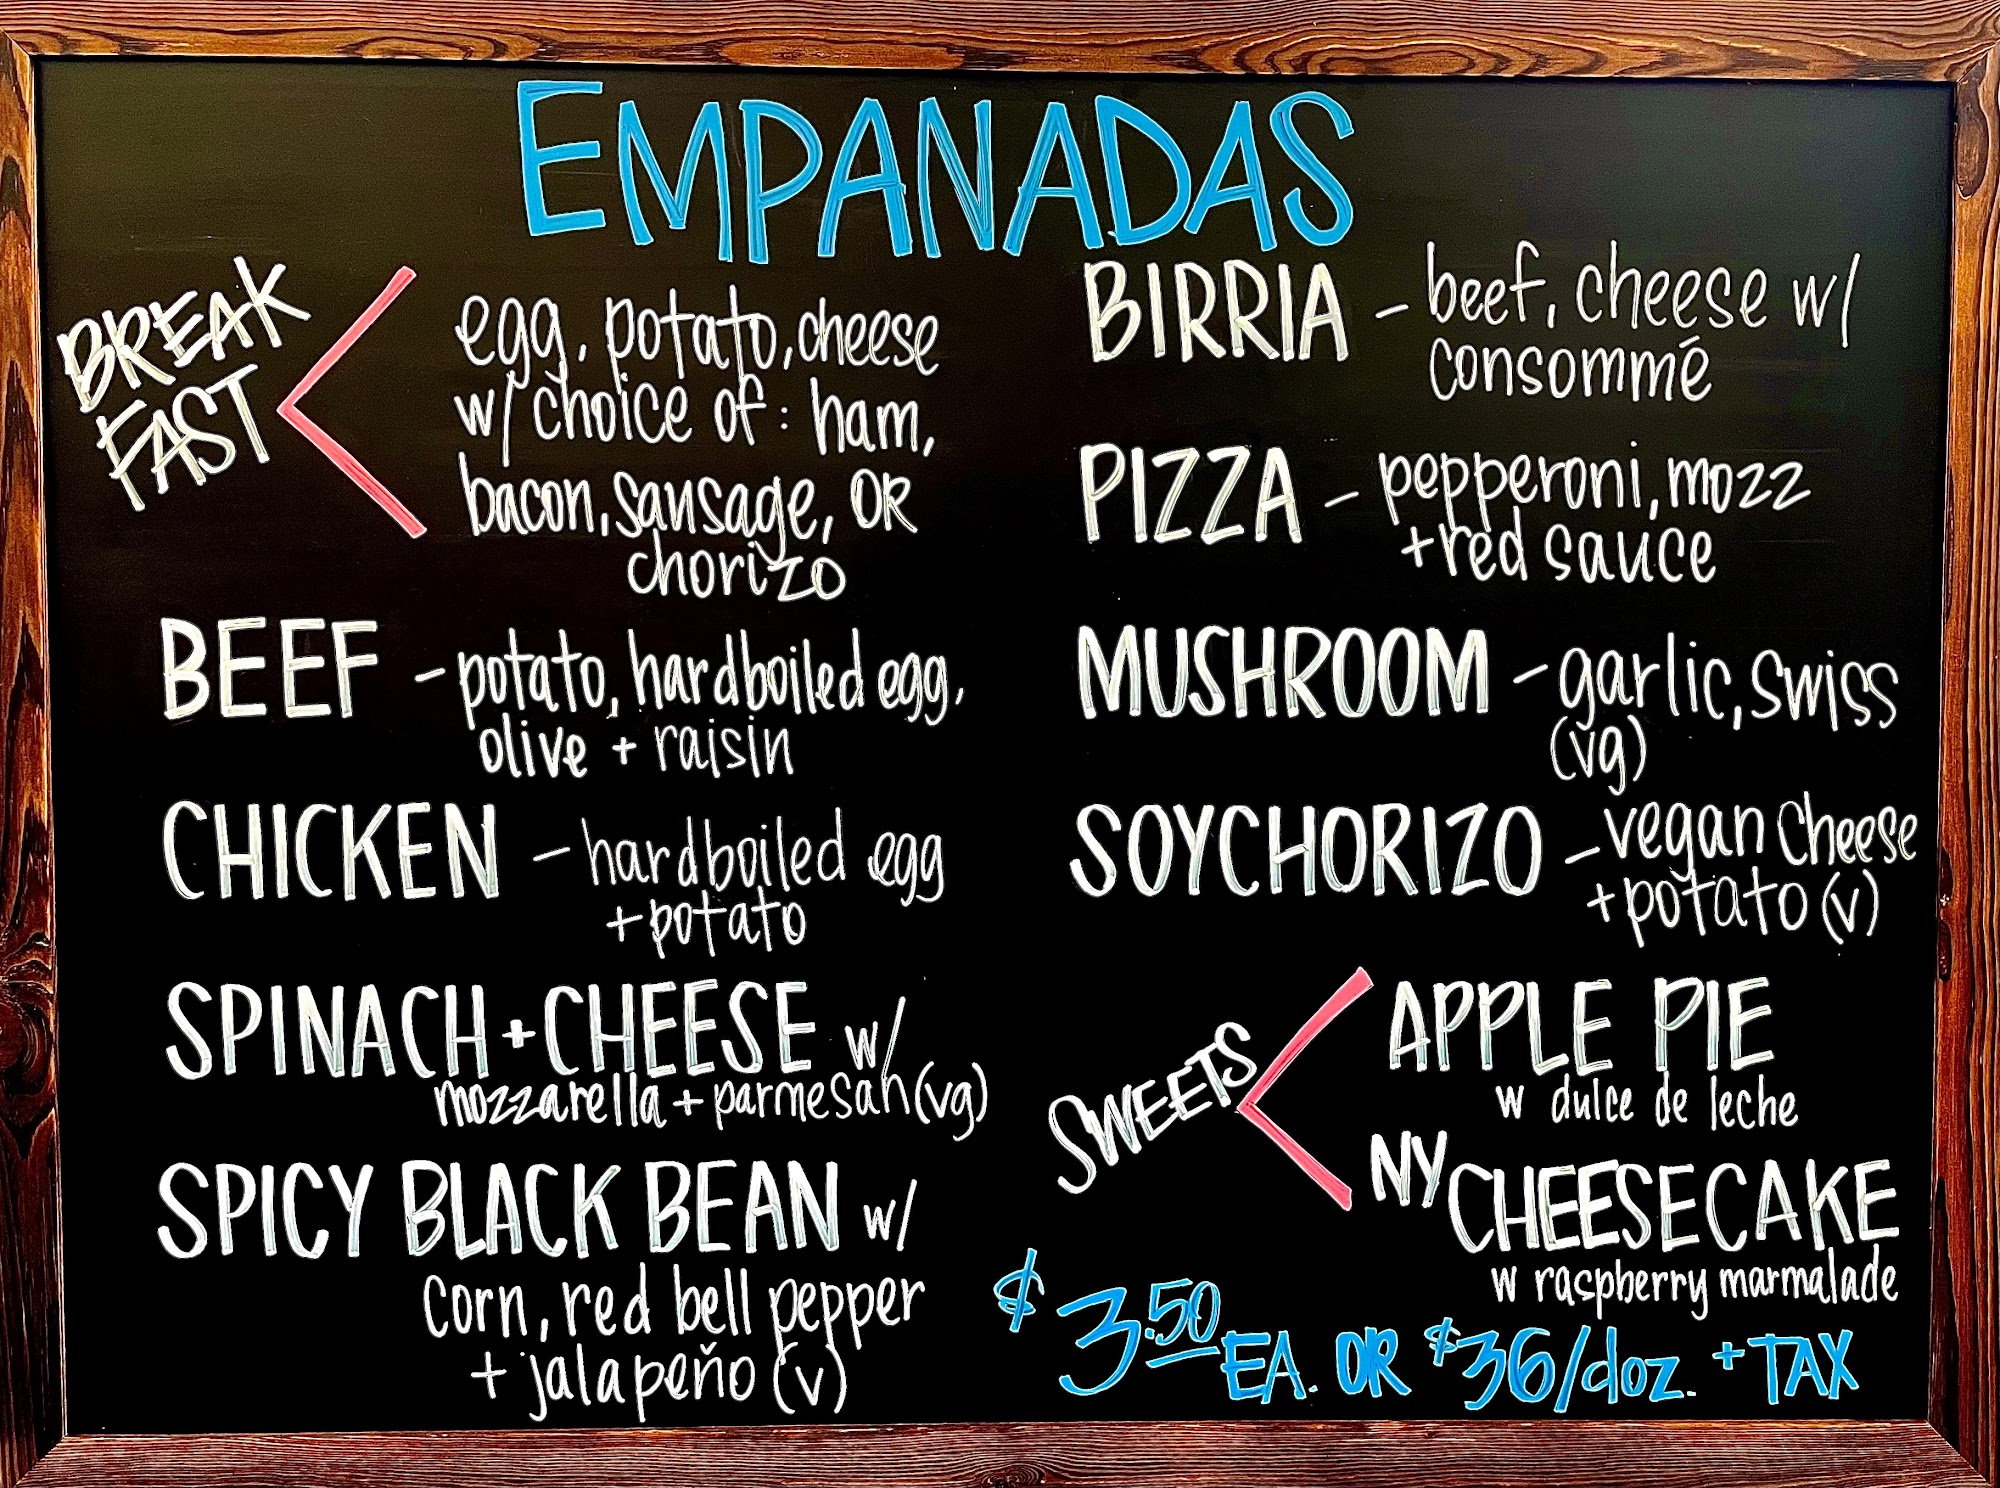 EMPANADAS
BREAK
FAST
egg, potato, cheese
w/ choice of: ham,
bacon, sausage, OR
chorizo
BEEF - potato, hardboiled egg,
olive + raisin
CHICKEN - hardboiled egg
+ potato
SPINACH + CHEESE w/
mozzarella + parmesan (vg)
SPICY BLACK BEAN w/
corn, red bell pepper
+ jalapeño (v)
BIRRIA - beef, cheese w/
consommé
PIZZA - pepperoni, mozz
+ red sauce
MUSHROOM - garlic, swiss
(vg)
SOYCHORIZO - vegan cheese
+ potato (v)
SWEETS
APPLE PIE
w dulce de leche
NY CHEESECAKE
w raspberry marmalade
$3.50 EA. OR $36/doz. + TAX